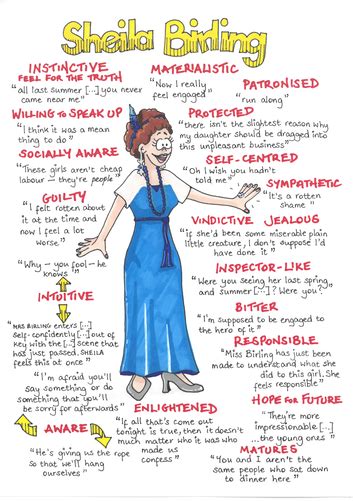 Sheila Birling
INSTINCTIVE
FEEL FOR THE TRUTH
"all last summer [...] you never
came near me"
WILLING TO SPEAK UP
"I think it was a mean
thing to do"
SOCIALLY AWARE
"These girls aren't cheap
labour – they're people"
GUILTY
"I felt rotten about
it at the time and
now I feel a lot
worse"
"Why – you fool – he
knows"
INTUITIVE
"MRS BIRLING enters [...]
self-confidently [...] out of
key with the [...] scene that
has just passed. SHEILA
feels this at once"
"I'm afraid you'll
say something or do
something that you'll
be sorry for afterwards"
AWARE
"He's giving us the rope
so that we'll hang
ourselves"
MATERIALISTIC
"Now I really
feel engaged"
PATRONISED
"run along"
PROTECTED
"there isn't the slightest reason why
my daughter should be dragged into
this unpleasant business"
SELF-CENTRED
"Oh I wish you hadn't
told me"
SYMPATHETIC
"It's a rotten
shame"
VINDICTIVE JEALOUS
"if she'd been some miserable plain
little creature, I don't suppose I'd
have done it"
INSPECTOR-LIKE
"Were you seeing her last spring
and summer [...]? Were you?"
BITTER
"I'm supposed to be engaged
to the hero of it"
RESPONSIBLE
"Miss Birling has just been
made to understand what she
did to this girl. She
feels responsible"
ENLIGHTENED
"If all that's come out
tonight is true, then it doesn't
much matter who it was who
made us
confess"
HOPE FOR FUTURE
"They're more
impressionable [...]
...the young ones"
MATURES
"You and I aren't the
same people who sat down
to dinner here"